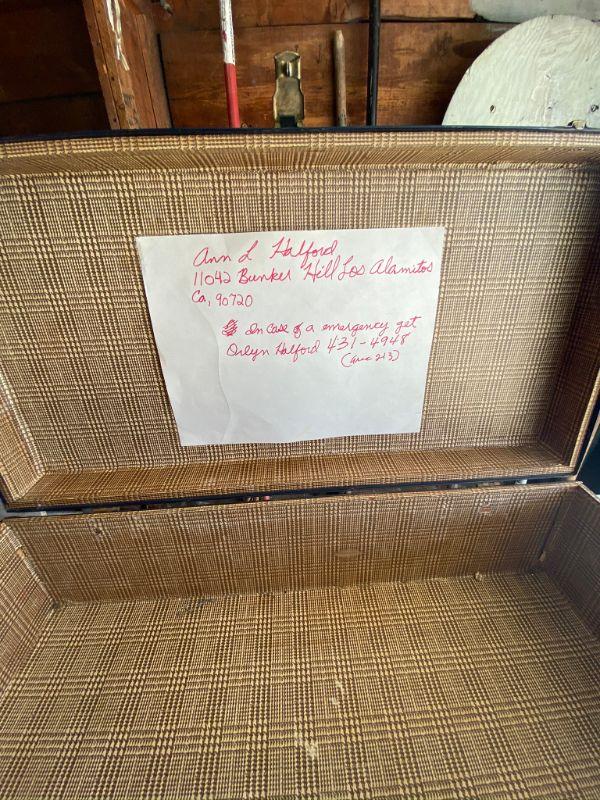 Ann L Halford
11042 Bunker Hill Los Alamitos
Ca, 90720
In case of a emergency get
Orlyn Halford 431-4948
(area 213)